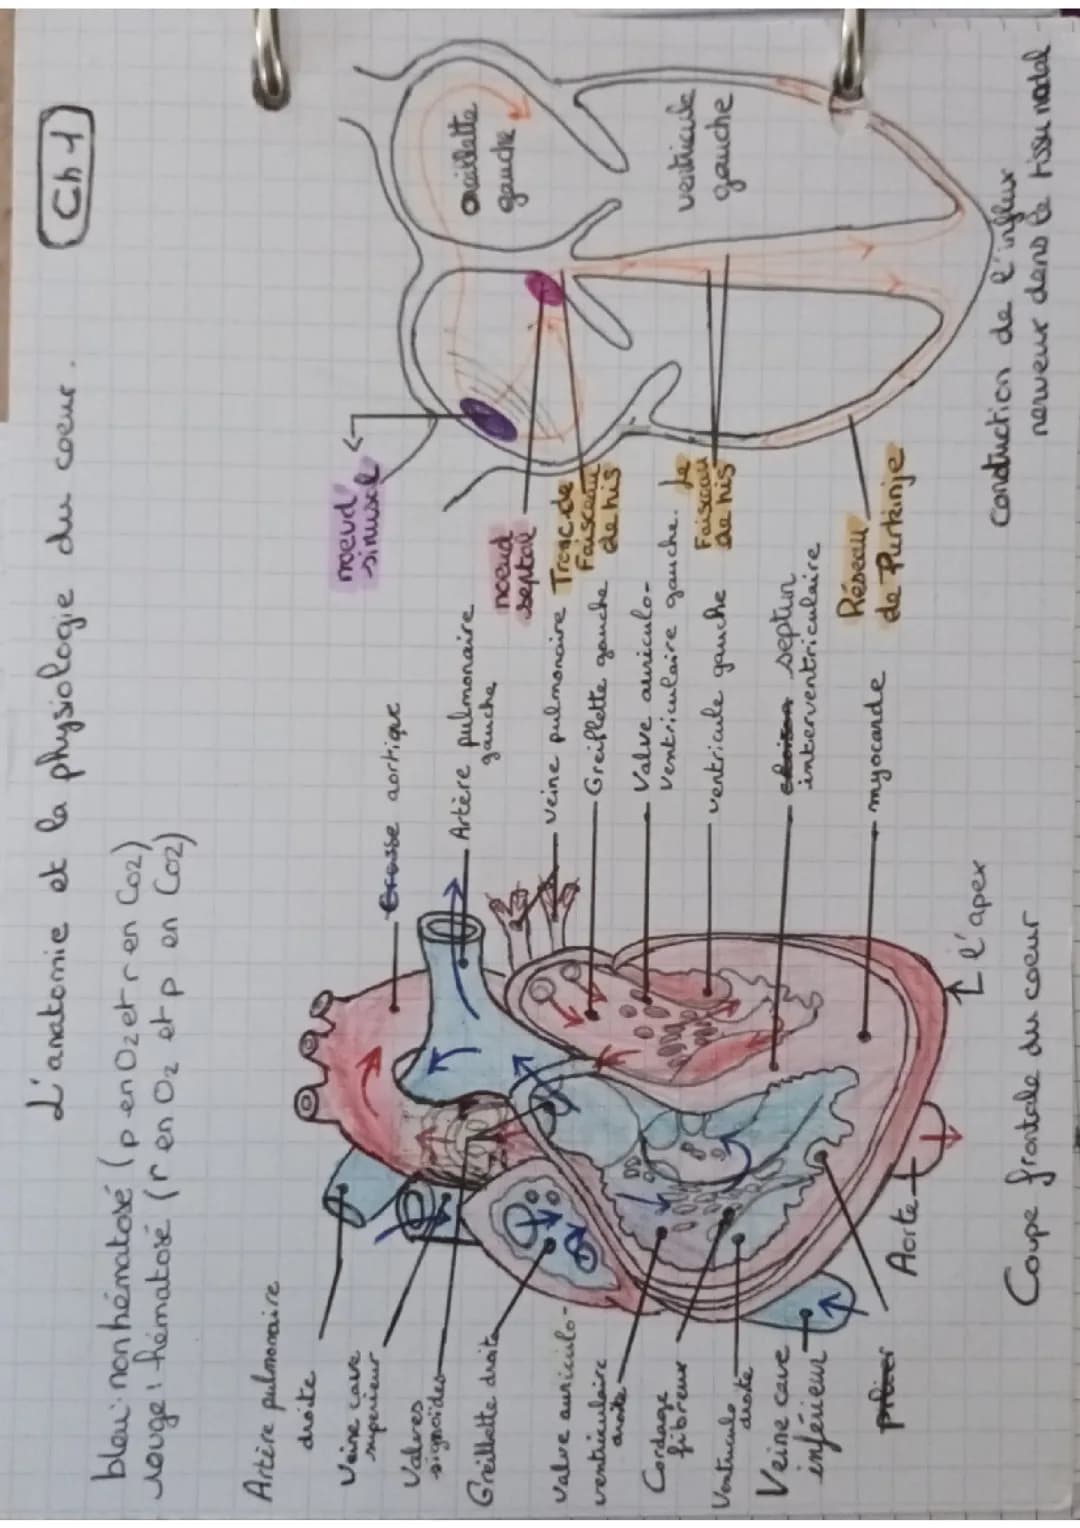 Ch 1
L'anatomie et la physiologie du coeur.
bleu: non hématosé (p en O2 et r en CO2)
rouge: hématosé (r en O2 et p en CO2)
Artère pulmonaire
droite
Veine cave
superieur
Valves
sigmoïdes
Oreillette droite
Valve auriculo-
ventriculaire
droite
Cordage
fibreux
Ventricule
droite
Veine cave
inférieur
pilier
Aorte
Crosse aortique
Artère pulmonaire
gauche
veine pulmonaire
Oreillette gauche
Valve auriculo-
ventriculaire gauche.
ventricule gauche
cloison septun
interventriculaire
myocarde
l'apex
Coupe frontale du coeur
noeud
sinusal
noeud
septal
Tronc de
Faisceau
de his
Le
Faisceau
de his
Réseau
de Purkinje
oreillette
gauche
ventricule
gauche
Conduction de l'influx
nerveux dans le tissu nodal